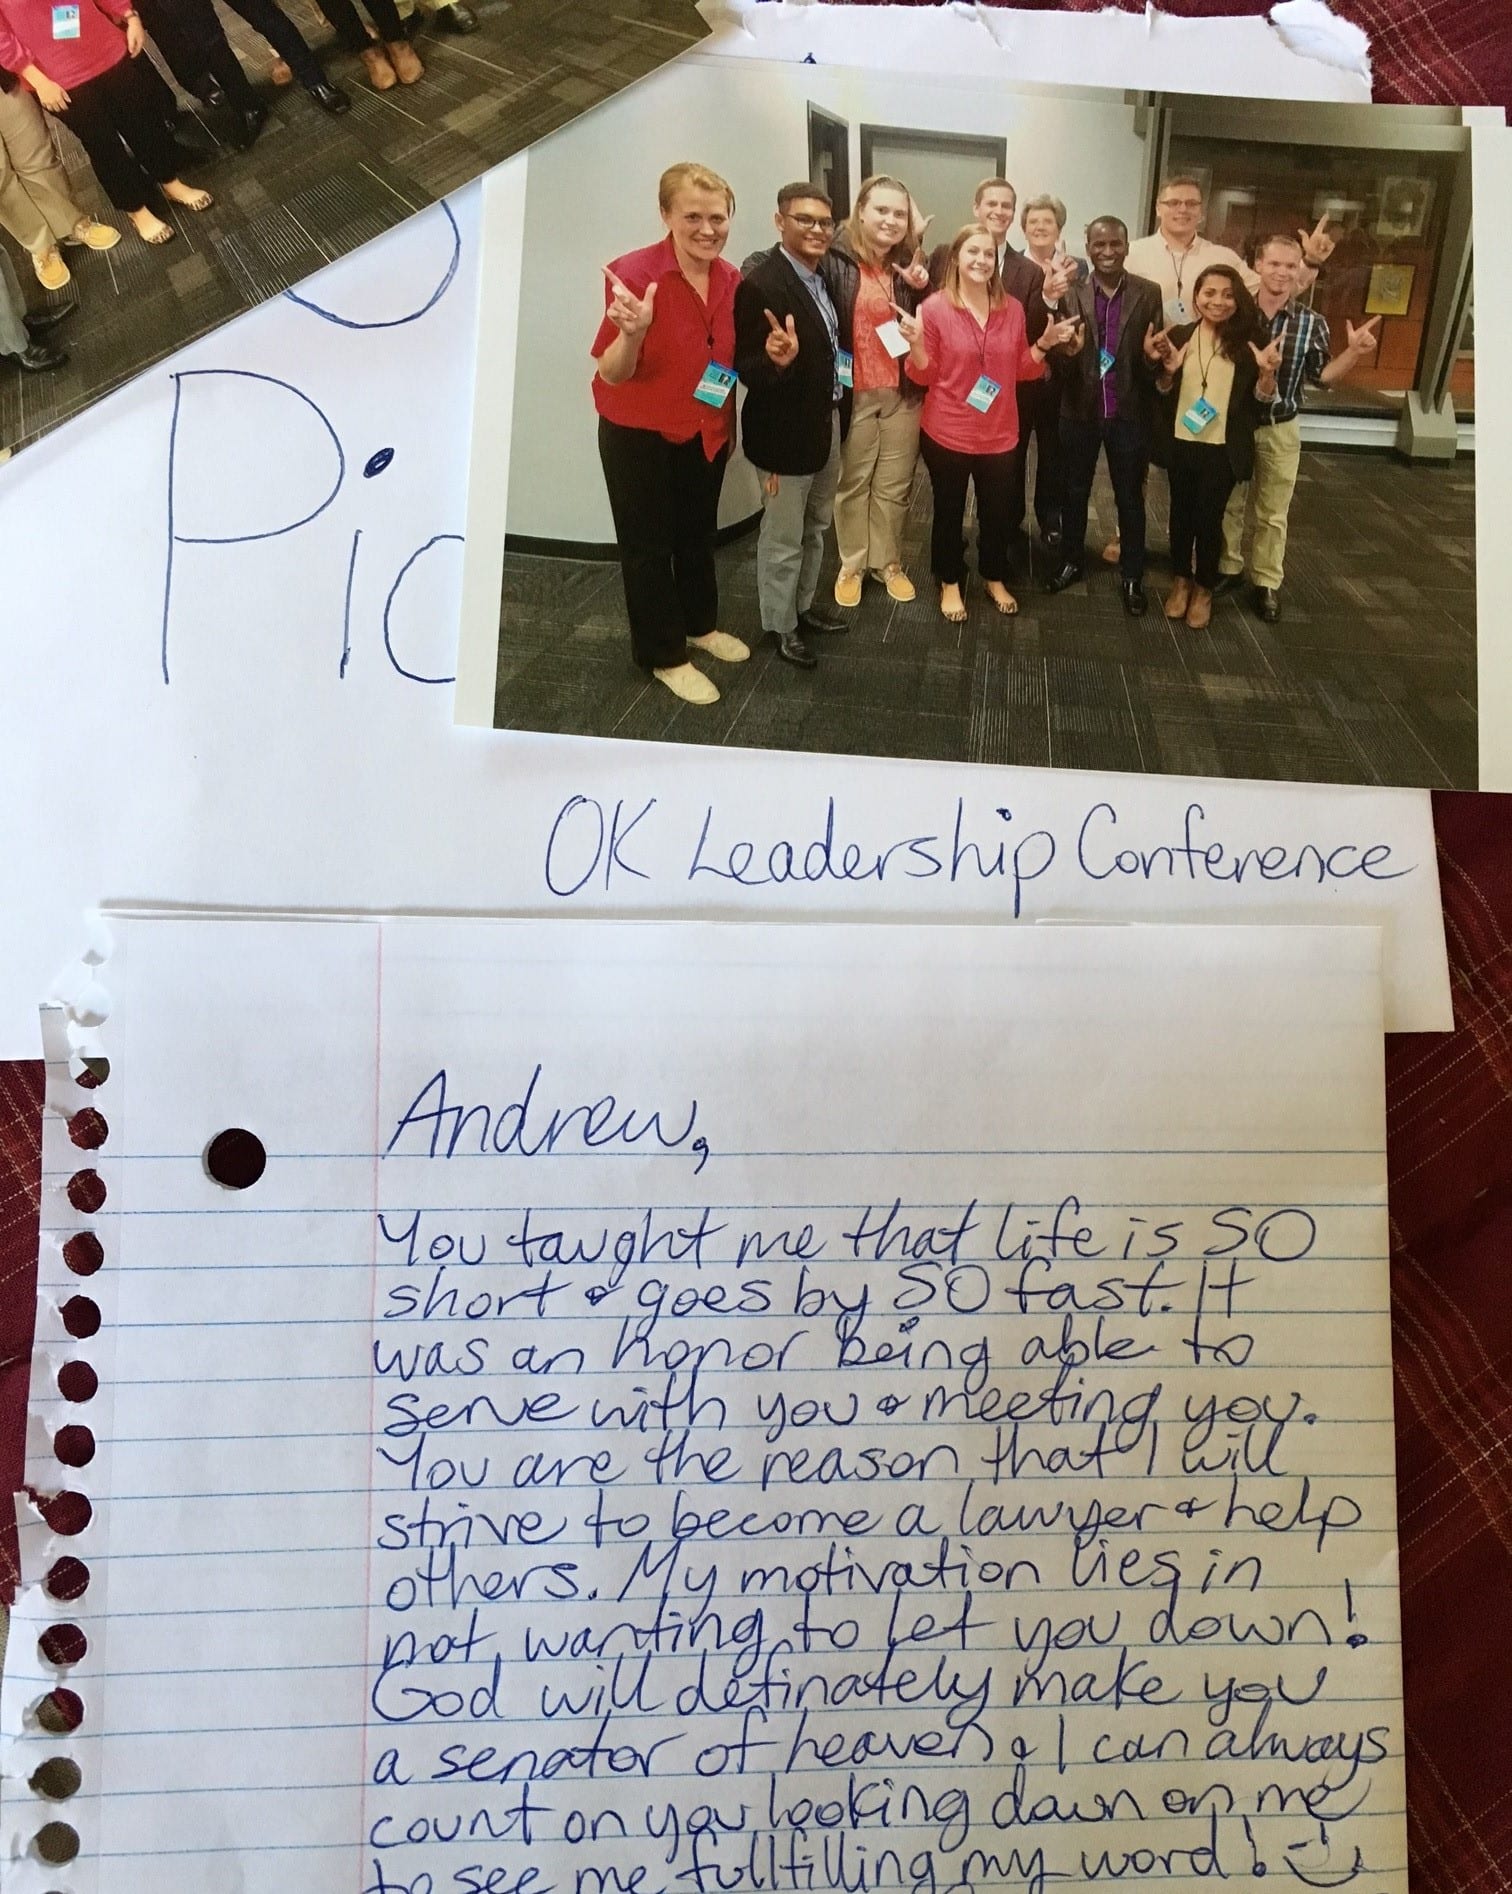 Pic
OK Leadership Conference
Andrew,
You taught me that life is SO
short & goes by SO fast. It
was an honor being able to
serve with you & meeting you.
You are the reason that I will
strive to become a lawyer & help
others. My motivation lies in
not wanting to let you down!
God will definately make you
a senator of heaven & I can always
count on you looking down on me
to see me fullfilling my word!